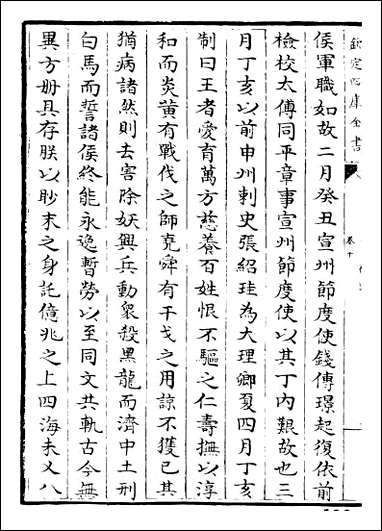 欽定四庫全書
卷十
侯軍職如故二月癸丑宣州節度使錢傳璟起復依前
檢校太傅同平章事宣州節度使以其丁内艱故也三
月丁亥以前申州刺史張紹珪為大理卿夏四月丁亥
制曰王者愛育萬方慈養百姓恨不驅之仁壽撫以淳
和而炎黄有戰伐之師堯舜有干戈之用諒不獲已其
猶病諸然則去害除妖興兵動衆殺黑龍而濟中土刑
白馬而誓諸侯終能永逸暫勞以至同文共軌古今無
異方册具存朕以眇末之身託億兆之上四海未乂八